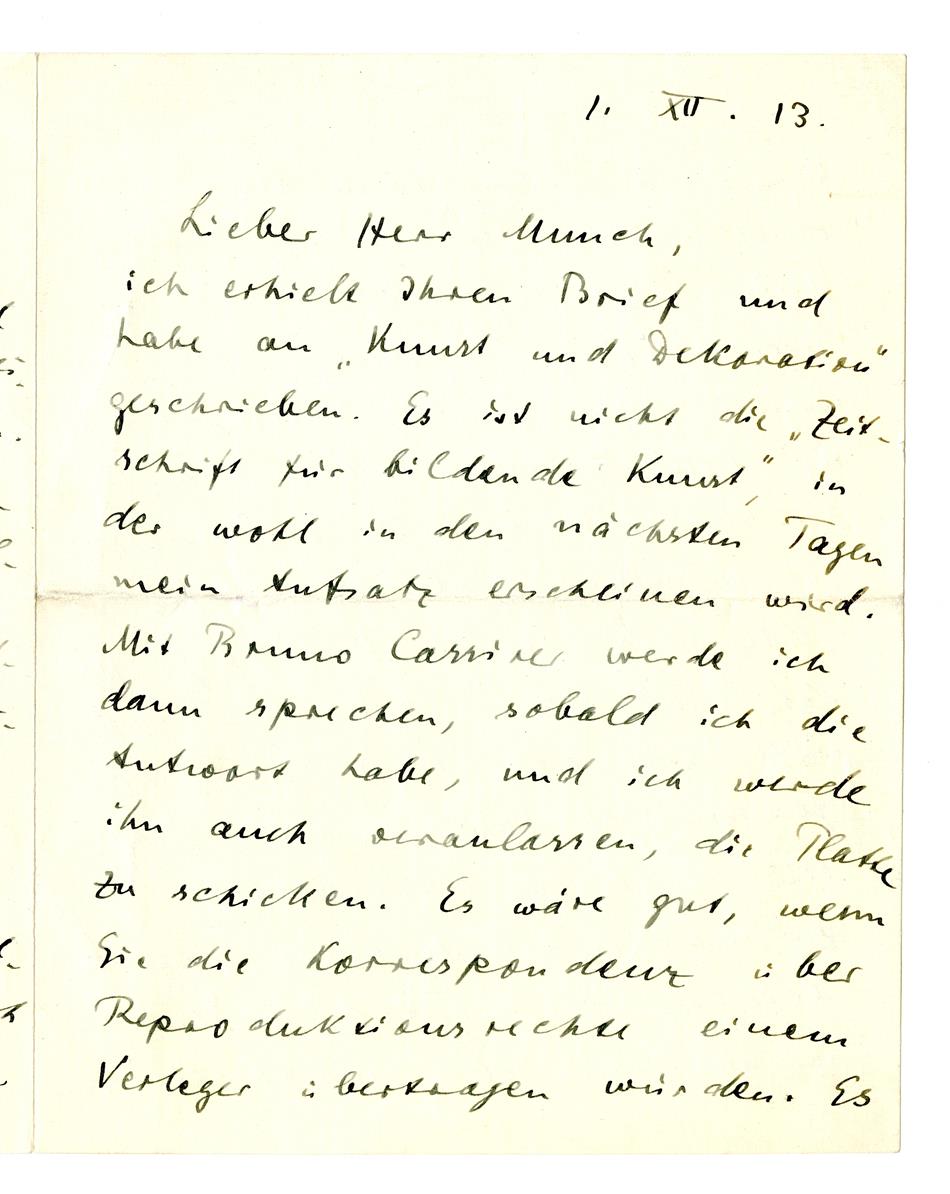 1. XII. 13.
Lieber Herr Munch,
ich erhielt Ihren Brief und
habe an „Kunst und Dekoration"
geschrieben. Es ist nicht die „Zeit-
schrift für bildende Kunst", in
der wohl in den nächsten Tagen
mein Aufsatz erscheinen wird.
Mit Bruno Cassirer werde ich
dann sprechen, sobald ich die
Antwort habe, und ich werde
ihn auch veranlassen, die Platte
zu schicken. Es wäre gut, wenn
Sie die Korrespondenz über
Reproduktionsrechte einem
Verleger übertragen würden. Es